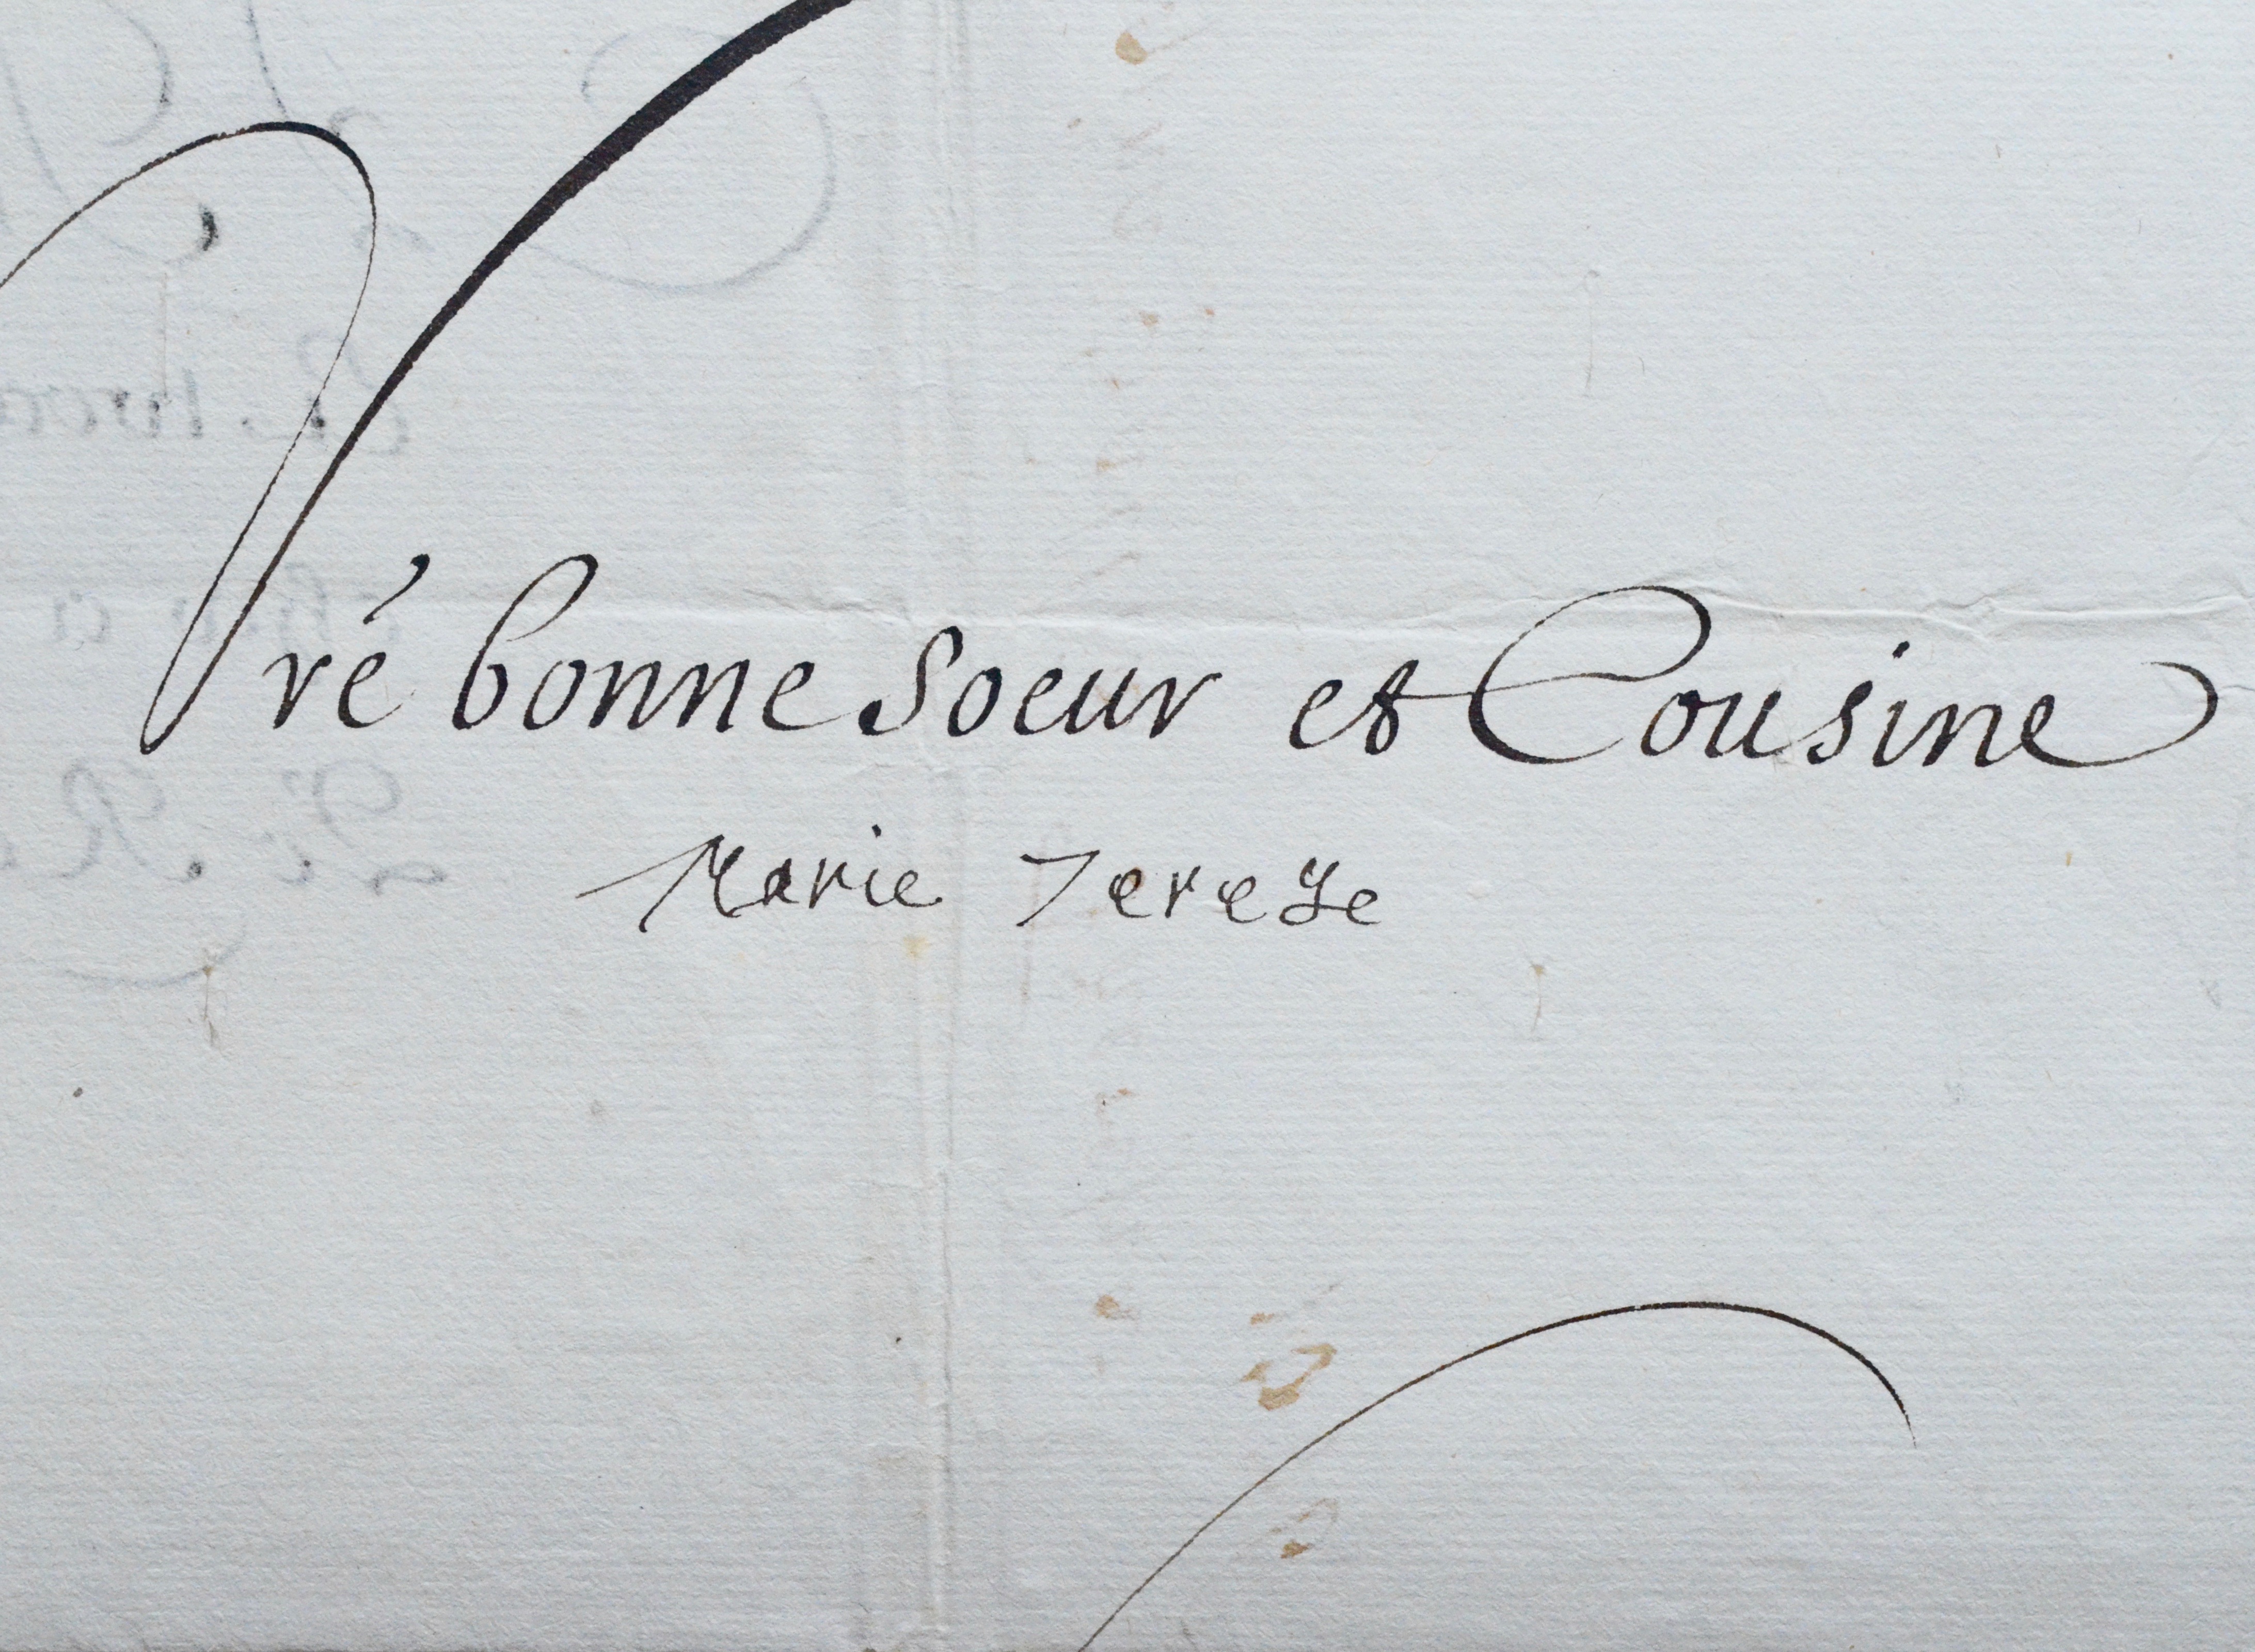 Vré bonne soeur et Cousine
Marie Terese